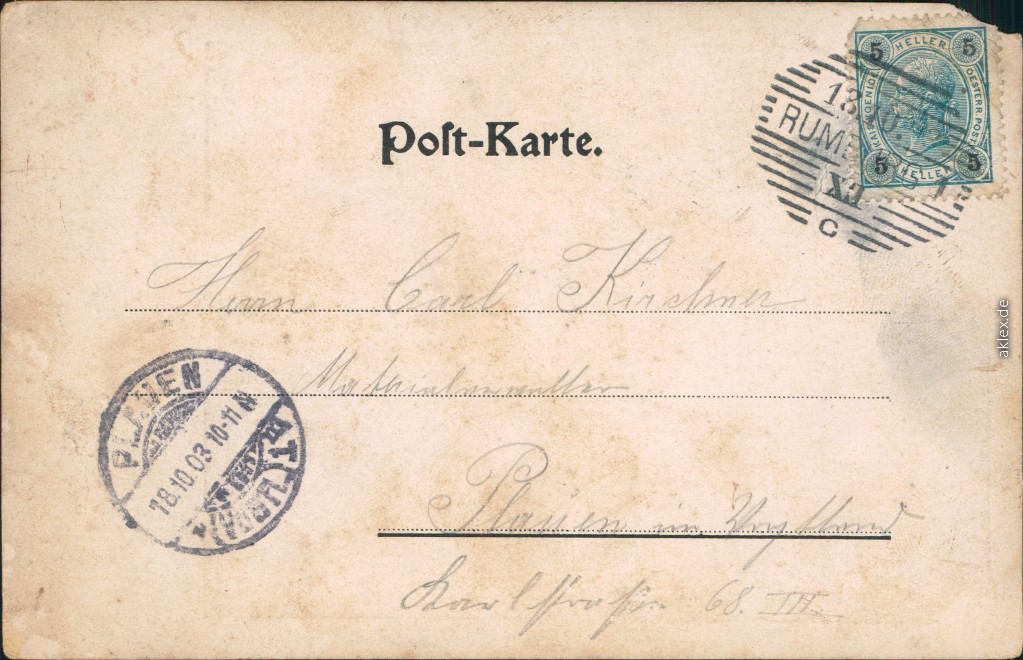 Post-Karte.
5 HELLER 5
KAIS. KOENIGL. OESTERR. POST
5 HELLER 5
18
RUM
XI
C
Herrn Carl Kirchner
Materialverwalter
Plauen im Vogtland
Karlstraße 68. III.
PLAUEN
18.10.03 10-11 N
(VOGTL.)
aklex.de